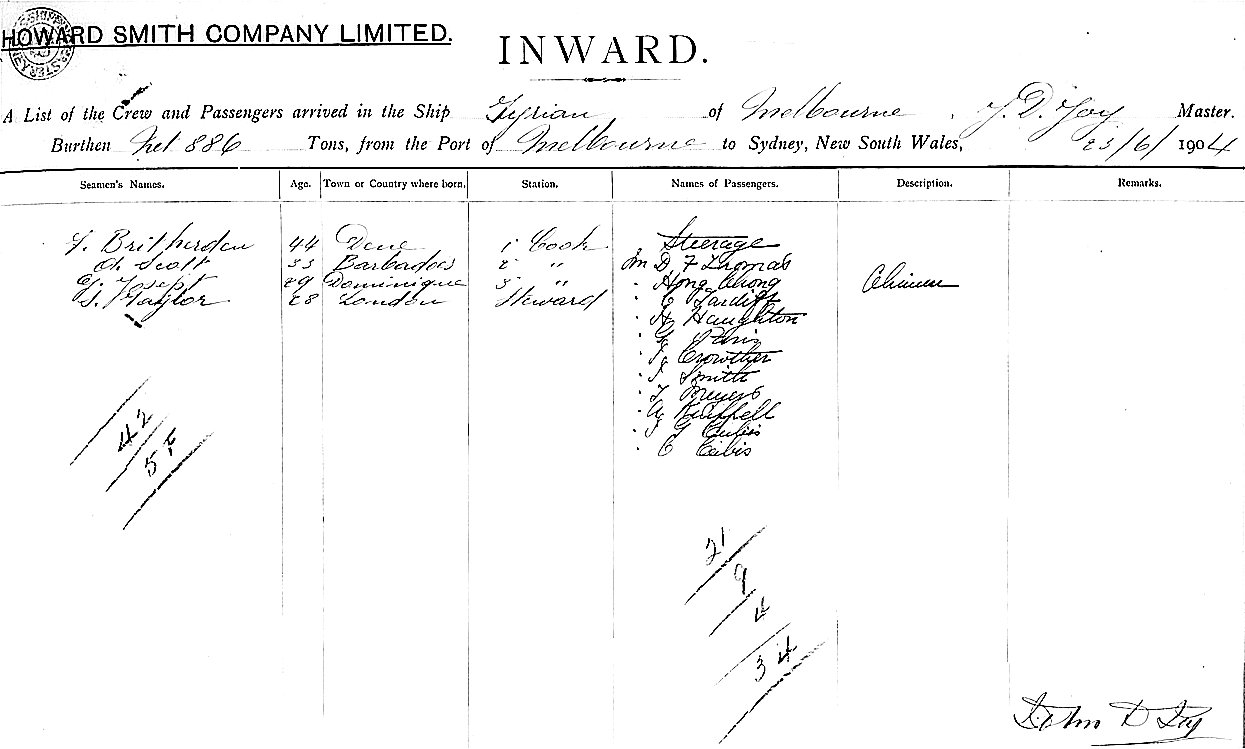 HOWARD SMITH COMPANY LIMITED.
INWARD.
A List of the Crew and Passengers arrived in the Ship Tyrian of Melbourne, J. D. Joy Master.
Burthen Net 886 Tons, from the Port of Melbourne to Sydney, New South Wales, 23/6/1904
Seamen's Names. Age. Town or Country where born. Station. Names of Passengers. Description. Remarks.
Steerage
Britherden 44 1 Cook
Scott 33 Barbados 2 "
29 Dominique 3 "
Taylor 28 London Steward
D. F. Thomas
Hong Chong Chinese
C Cardiff
H Haughton
Crowther
Smith
Meyers
42
58
21
9
4
34
John D Joy